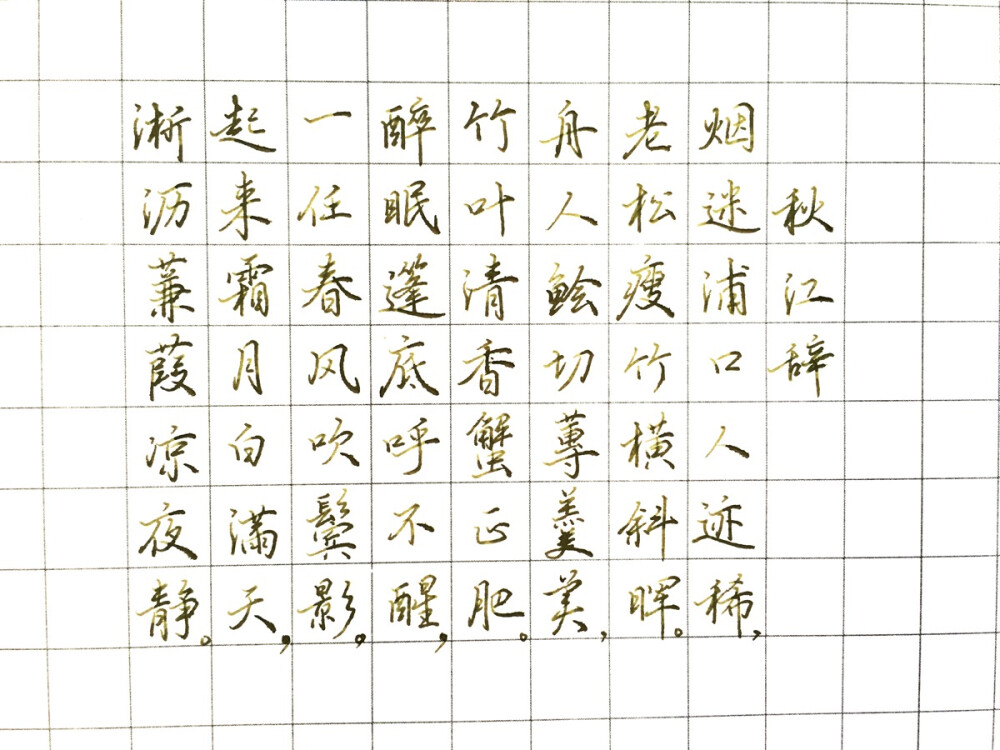 秋江辞
烟迷浦口人迹稀,
老松瘦竹横斜晖。
舟人鱠切蓴羹美,
竹叶清香蟹正肥。
醉眠蓬底呼不醒,
一任春风吹鬓影。
起来霜月白满天,
淅沥蒹葭凉夜静。